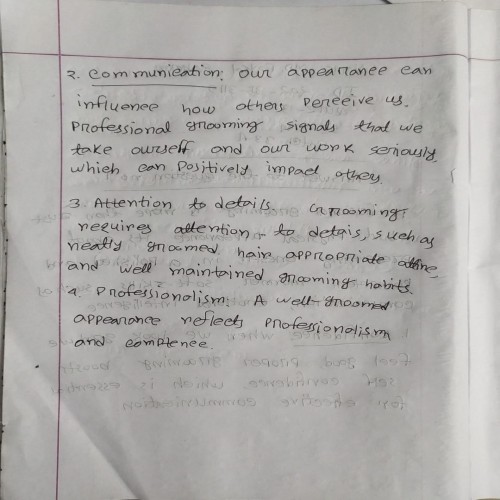 2. Communication: our appearance can
influence how others perceive us.
Professional grooming signals that we
take ourself and our work seriously,
which can positively impact others.
3. Attention to details. Grooming
requires attention to detais, such as
neatly groomed hair, appropriate attire,
and well maintained grooming habits
4. Professionalism: A well-groomed
appearance reflects professionalism
and comptence.